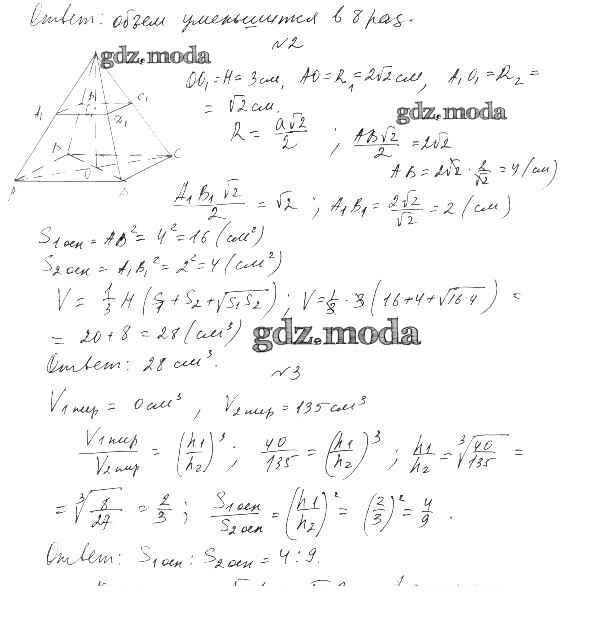 Ответ: объем уменьшится в 8 раз.
№2
gdz.moda
OO₁ = H = 3 см, AO = R₁ = 2√2 см, A₁O₁ = R₂ =
= √2 см.
gdz.moda
R = a√2/2 ; AB√2/2 = 2√2
AB = 2√2 · 2/√2 = 4 (см)
A₁ B₁ C₁ D₁
A B C D O
A₁B₁√2/2 = √2 ; A₁B₁ = 2√2/√2 = 2 (см)
S₁осн = AB² = 4² = 16 (см²)
S₂осн = A₁B₁² = 2² = 4 (см²)
V = 1/3 H (S₁ + S₂ + √S₁S₂) ; V = 1/3 · 3 (16 + 4 + √16·4) =
= 20 + 8 = 28 (см³)
gdz.moda
Ответ: 28 см³.
№3
V₁пир = 0 см³ , V₂пир = 135 см³
V₁пир/V₂пир = (h₁/h₂)³ ; 40/135 = (h₁/h₂)³ ; h₁/h₂ = ³√40/135 =
= ³√8/27 = 2/3 ; S₁осн/S₂осн = (h₁/h₂)² = (2/3)² = 4/9 .
Ответ: S₁осн : S₂осн = 4 : 9.